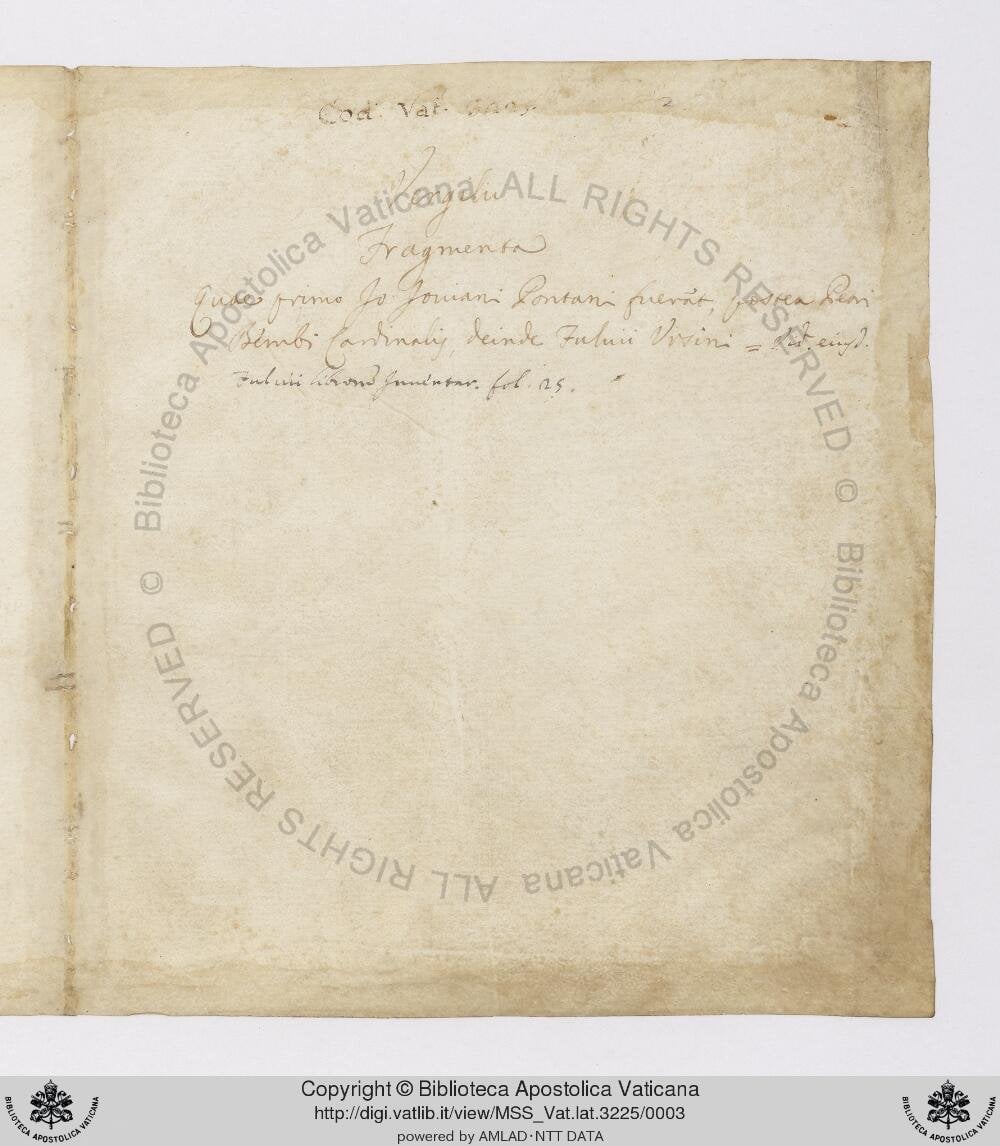 Cod. Vat. 3225. 2
Vergilii
Fragmenta
Quae primo Jo. Joviani Pontani fuerūt, postea Petri
Bembi Cardinalis, deinde Fulvii Ursini = Vid. eiusd.
Fulvii librorū Inventar. fol. 25.
© Biblioteca Apostolica Vaticana ALL RIGHTS RESERVED
© Biblioteca Apostolica Vaticana ALL RIGHTS RESERVED
Copyright © Biblioteca Apostolica Vaticana
http://digi.vatlib.it/view/MSS_Vat.lat.3225/0003
powered by AMLAD·NTT DATA
BIBLIOTECA APOSTOLICA VATICANA
BIBLIOTECA APOSTOLICA VATICANA